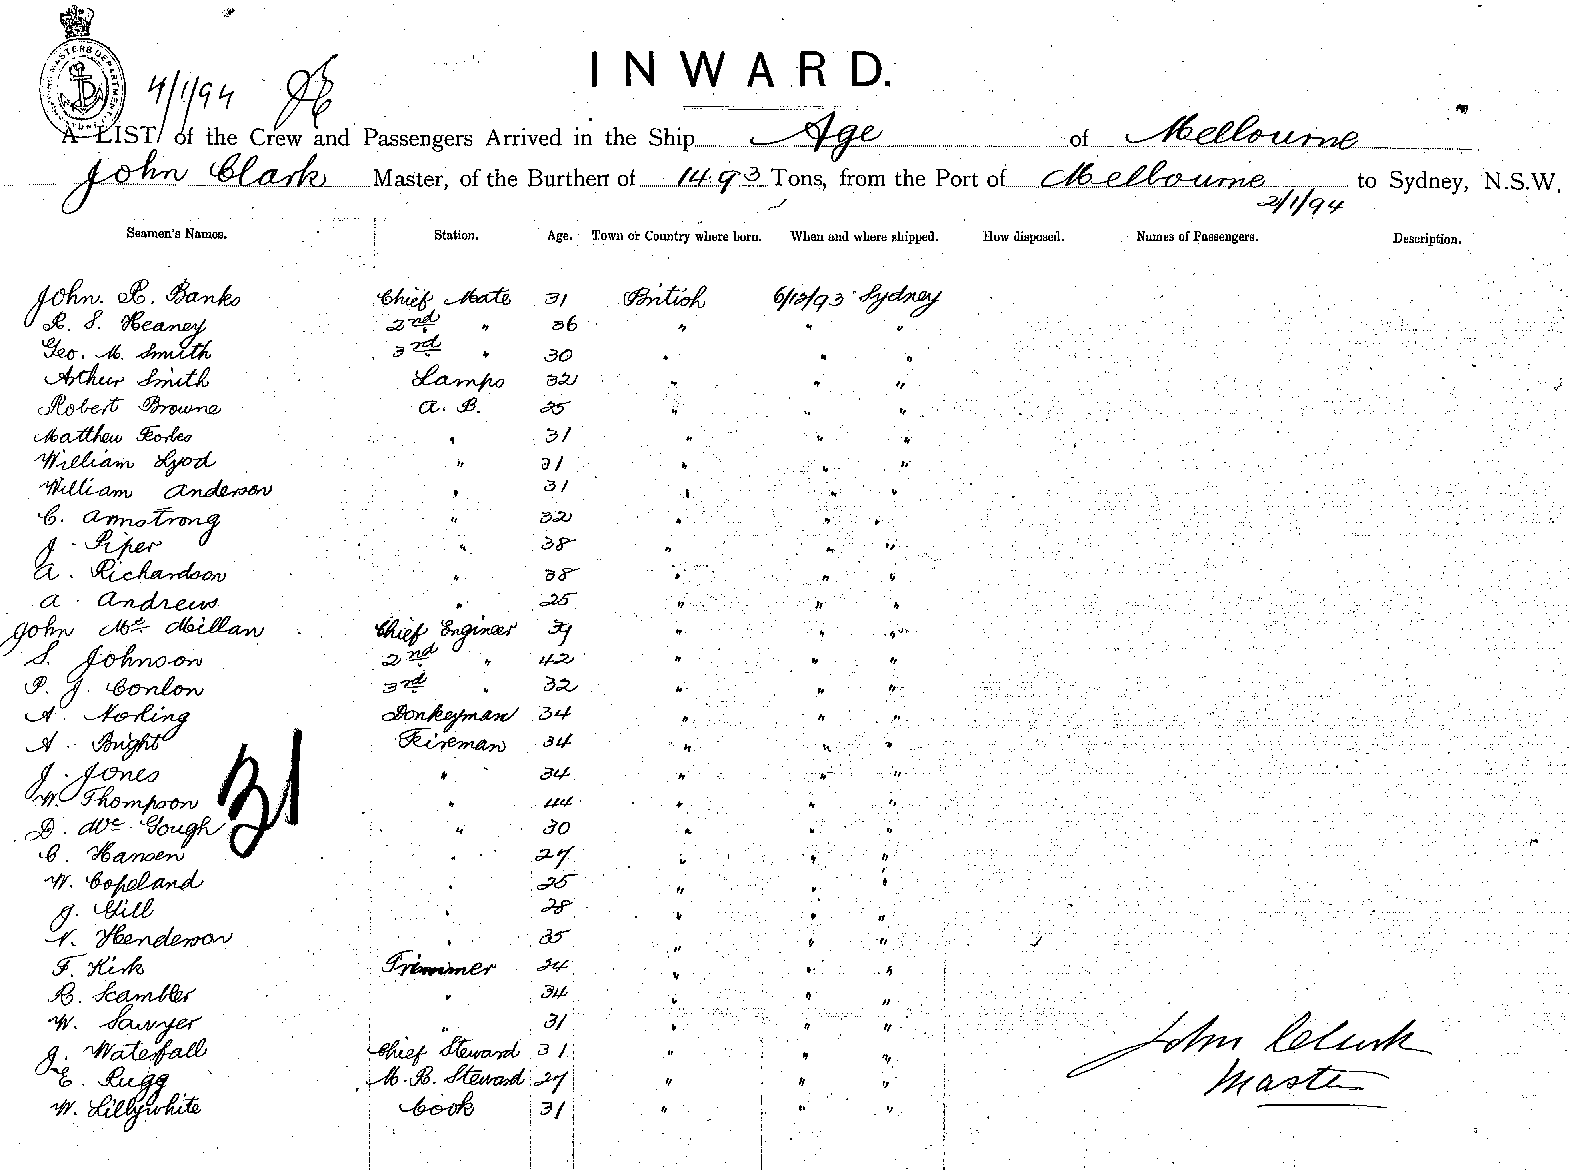 INWARD.
4/1/94
A LIST of the Crew and Passengers Arrived in the Ship Age of Melbourne
John Clark Master, of the Burthen of 1493 Tons, from the Port of Melbourne to Sydney, N.S.W.
2/1/94
Seamen's Names. Station. Age. Town or Country where born. When and where shipped. How disposed. Names of Passengers. Description.
John. R. Banks Chief Mate 31 British 6/12/93 Sydney
R. S. Heaney 2nd " 36 " " "
Geo. M. Smith 3rd " 30 " " "
Arthur Smith Lamps 32 " " "
Robert Browne A. B. 35 " " "
Matthew Forbes " 31 " " "
William Lyod " 31 " " "
William Anderson " 31 " " "
C. Armstrong " 32 " " "
J. Piper " 38 " " "
A. Richardson " 38 " " "
A. Andrews " 25 " " "
John Mc Millan Chief Engineer 39 " " "
S. Johnson 2nd " 42 " " "
P. J. Conlon 3rd " 32 " " "
A. Norling Donkeyman 34 " " "
A. Bught Fireman 34 " " "
J. Jones " 34 " " "
W. Thompson " 44 " " "
D. Mc Gough " 30 " " "
C. Hansen " 27 " " "
W. Copeland " 25 " " "
J. Gill " 28 " " "
N. Henderson " 35 " " "
F. Kirk Trimmer 24 " " "
R. Scambler " 34 " " "
W. Sawyer " 31 " " "
J. Waterfall Chief Steward 31 " " "
E. Rugg M. R. Steward 27 " " "
W. Lillywhite Cook 31 " " "
John Clark
Master